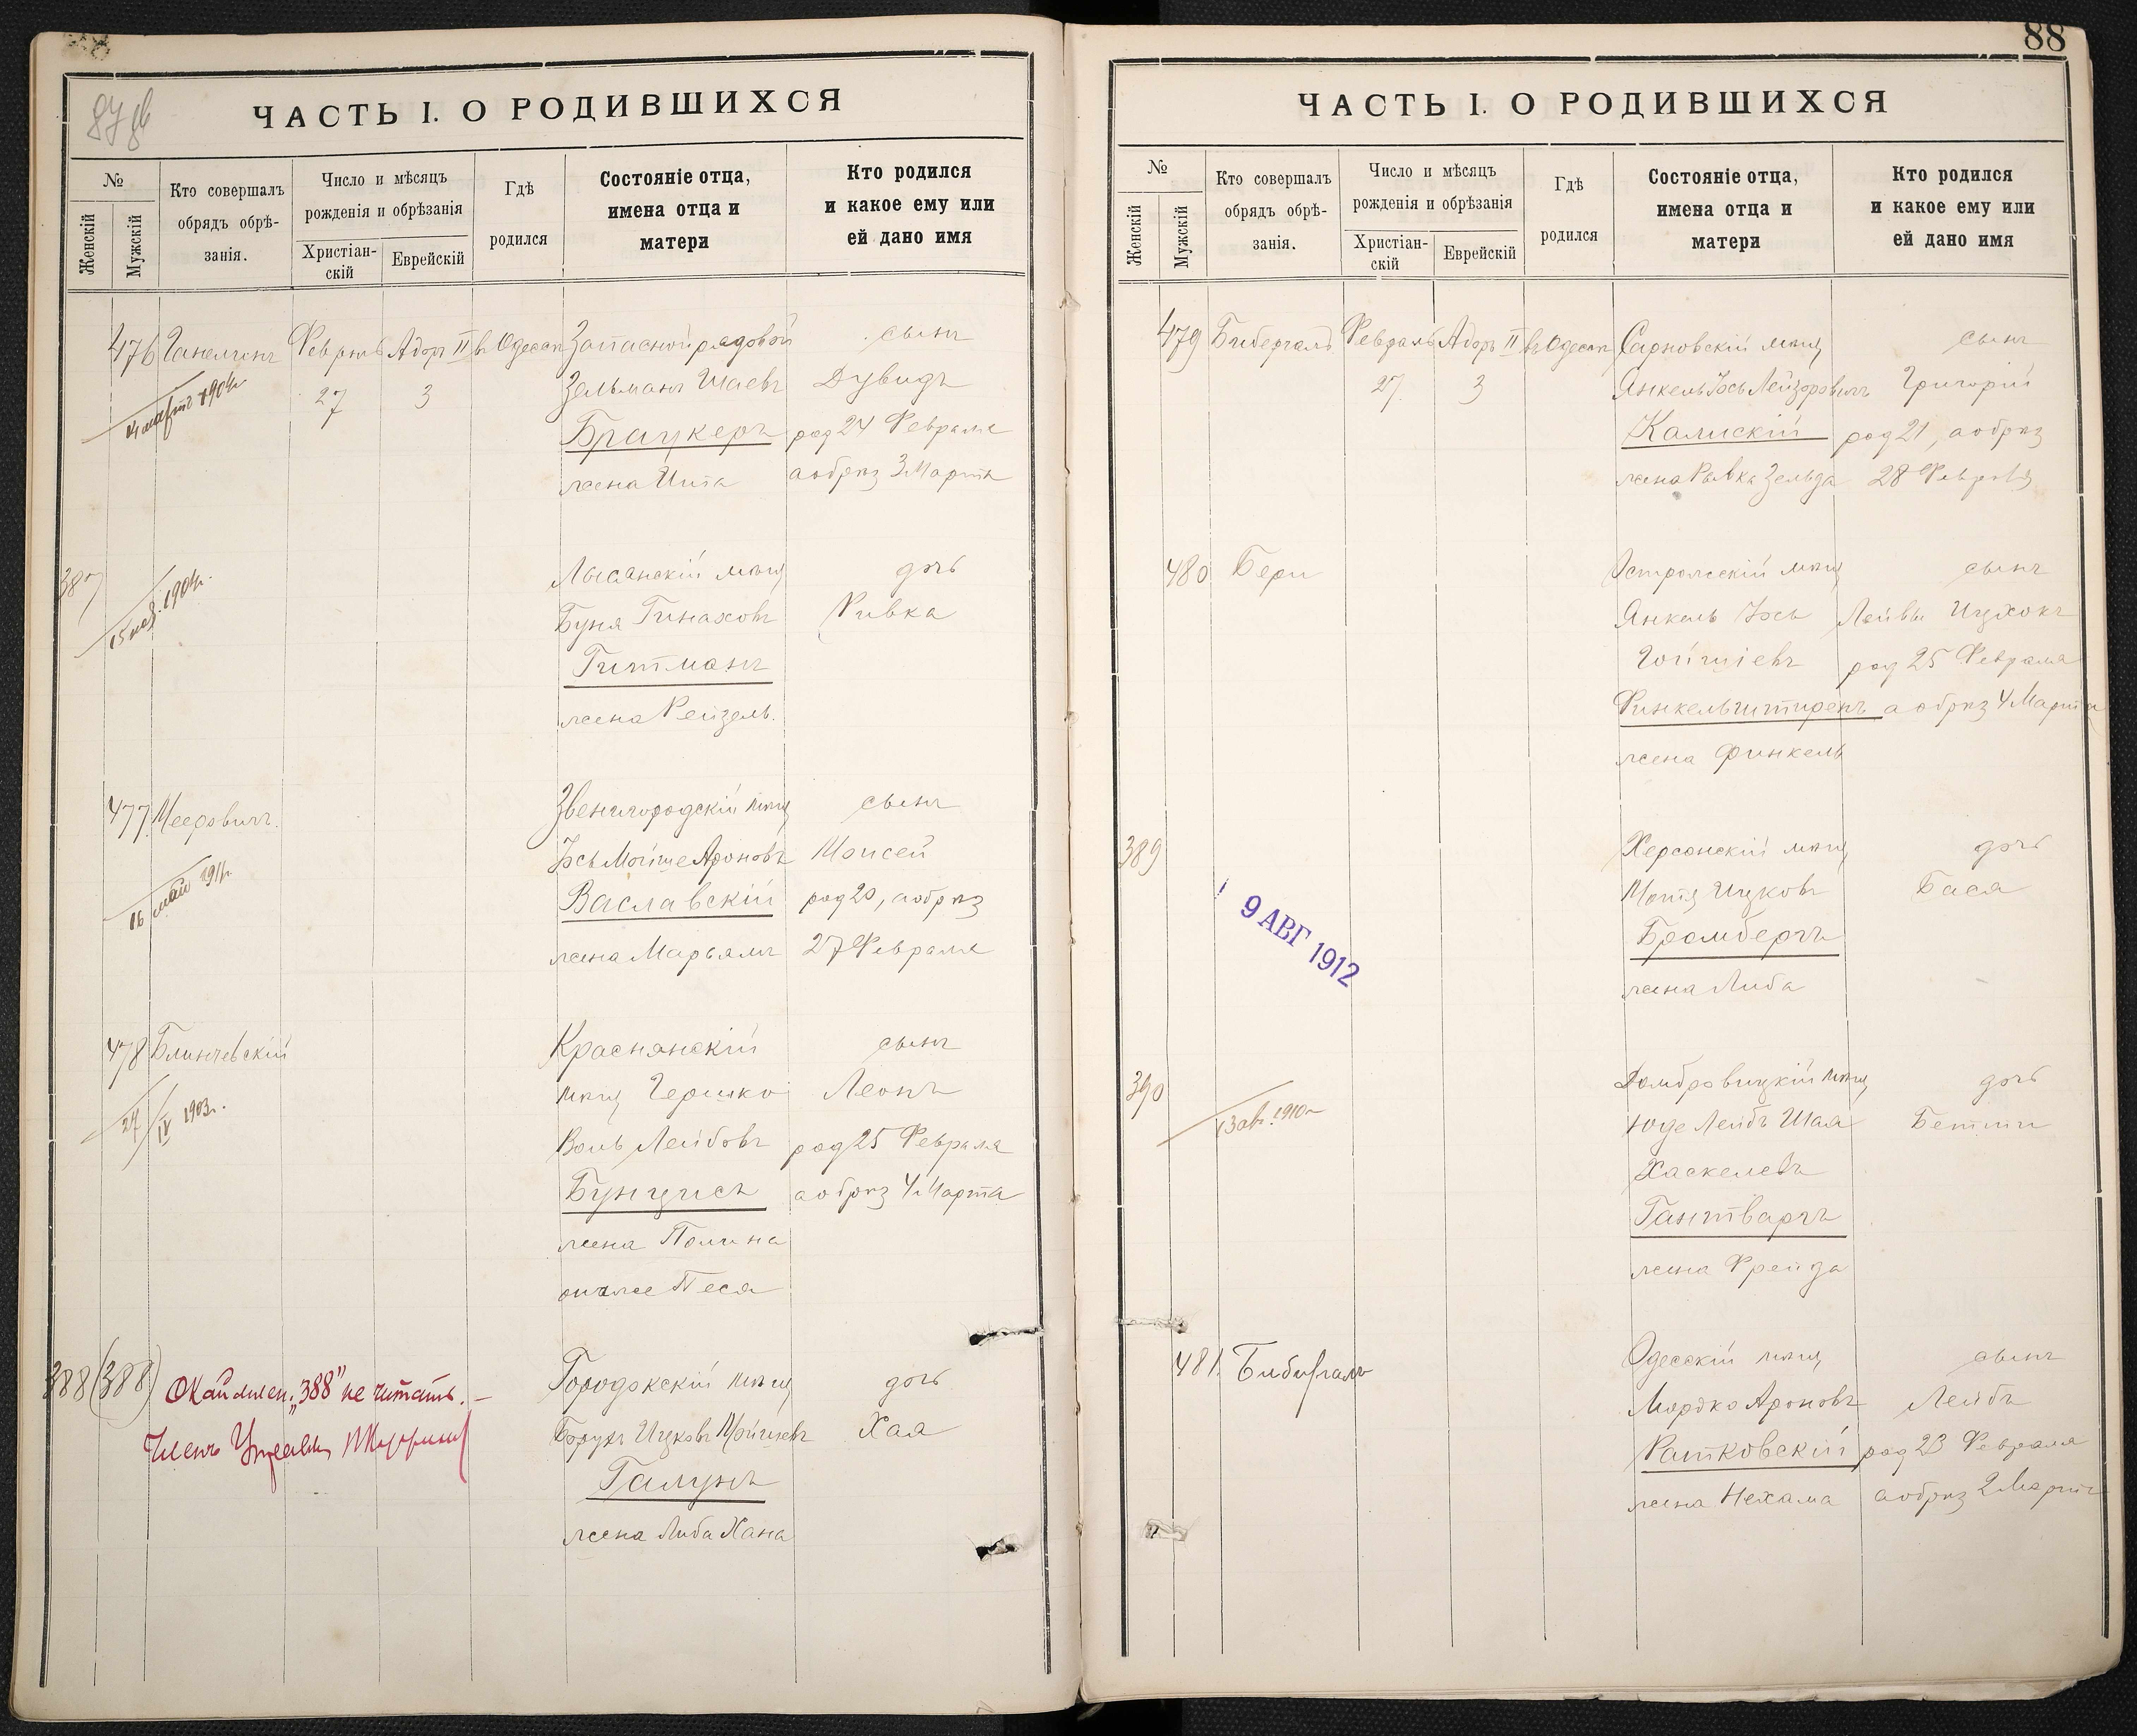 87 об
ЧАСТЬ I. О РОДИВШИХСЯ
№
Женскій
Мужскій
Кто совершалъ
обрядъ обрѣ-
занія.
Число и мѣсяцъ
рожденія и обрѣзанія
Христіан-
скій
Еврейскій
Гдѣ
родился
Состояніе отца,
имена отца и
матери
Кто родился
и какое ему или
ей дано имя
476 Ганелинъ Февраль Адоръ II въ Одессѣ Запасной рядовой сынъ
27 3 Зельманъ Шаевъ Дувидъ
4 мартъ 1904 г.
Браукеръ род 24 Февраля
жена Ита а обрѣз 3 Марта
387 Лысянскій мѣщ дочь
15 1904 г.
Буня Пинаховъ Ривка
Гитманъ
жена Рейзель.
477 Мееровичъ. Звенигородскій мѣщ сынъ
Іось Мойше Ароновъ Моисей
16 май 1911 г.
Ваславскій род 20, а обрѣз
жена Марьямъ 27 Февраля
478 Блинчевскій Краснянскій сынъ
мѣщ Гершко Леонъ
24/IV 1903 г.
Воль Лейбовъ род 25 Февраля
Бунцисъ а обрѣз 4 Марта
жена Полина
онаже Песя
388 (388) Городокскій мѣщ дочь
Окаймлен. „388" не читать. —
Борухъ Ицковъ Мойшевъ Хая
Членъ Управы
Галунъ
жена Либа Хана
88
ЧАСТЬ I. О РОДИВШИХСЯ
№
Женскій
Мужскій
Кто совершалъ
обрядъ обрѣ-
занія.
Число и мѣсяцъ
рожденія и обрѣзанія
Христіан-
скій
Еврейскій
Гдѣ
родился
Состояніе отца,
имена отца и
матери
Кто родился
и какое ему или
ей дано имя
479 Бибергалъ Февраль Адоръ II въ Одессѣ Сарновскій мѣщ сынъ
27 3 Янкель Іось Лейзоровичъ Григорій
Калискій род 21, а обрѣз
жена Рывка Зельда 28 Февраля
480 Бери Острожскій мѣщ сынъ
Янкель Іось Лейвы Ицхокъ
Гойшіевъ род 25 Февраля
Финкельштиренъ а обрѣз 4 Марта
жена Финкель
389 Херсонскій мѣщ дочь
Мотя Ицковъ Бася
9 АВГ 1912
Бромбергъ
жена Либа
390 Домбровицкій мѣщ дочь
13 ав. 1910 г.
Юде Лейбъ Шая Бетти
Хаскелевъ
Гантваргъ
жена Фрейда
481. Бибергалъ Одесскій мѣщ сынъ
Мордко Ароновъ Лейбъ
Ратковскій род 23 Февраля
жена Нехама а обрѣз 2 Марта